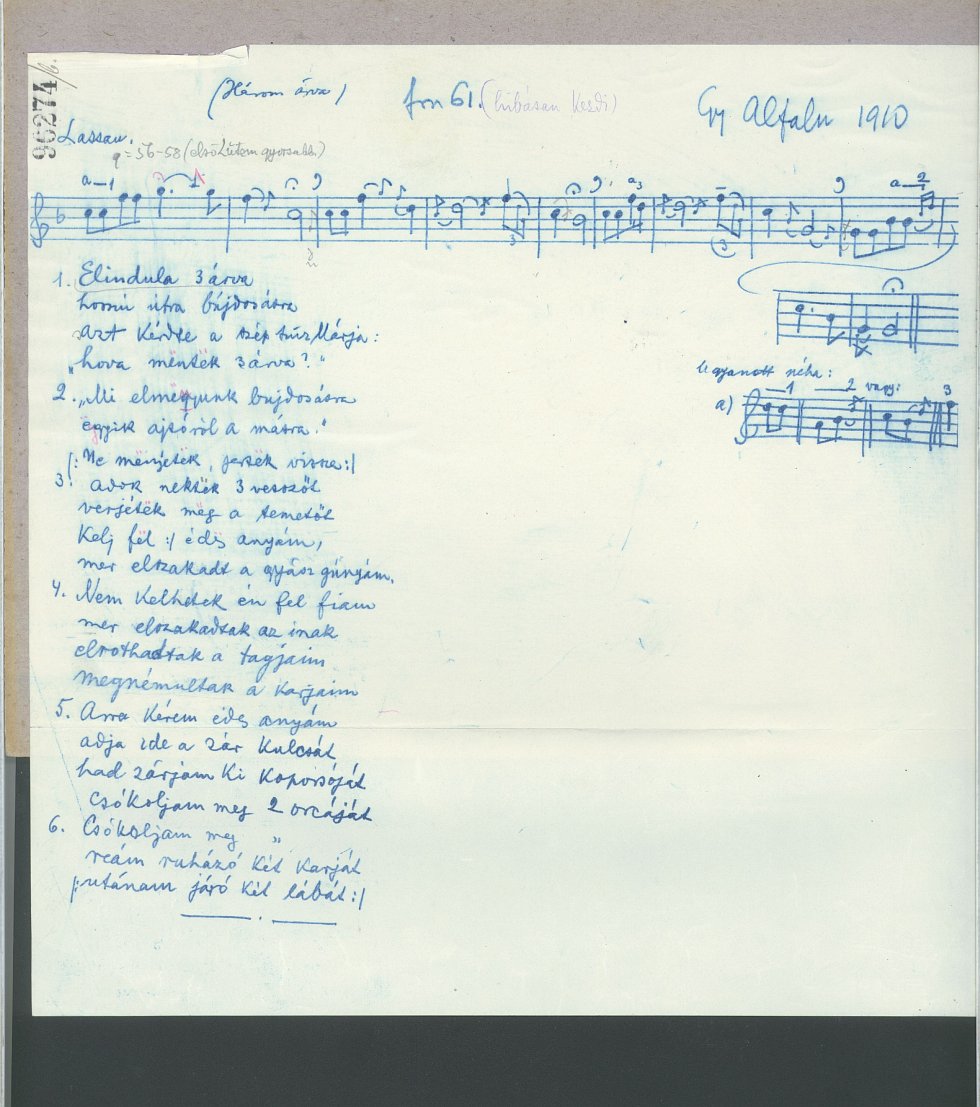 96274/b.
(Három árva)
fon 61. (hibásan kezdi)
Gy Alfalu 1910
Lassan.
=56-58 (első ütem gyorsabb.)
a 1
a 3
a 2
3
3
1. Elindula 3 árva
hosszú útra bújdosásra
azt kérdte a szép szűz Márja:
„hova mëntëk 3 árva?"
2. „Mi elmegyünk bujdosásra
ëgyik ajtóról a másra."
/: Ne mënjetëk, jertëk vissza :/
3. adok nektëk 3 vesszőt
verjétëk mëg a temetőt
Kelj fël :/ édës anyám,
mer elszakadt a gyász gúnyám.
4. Nem kelhetek én fel fiam
mer elszakadtak az inak
elrothadtak a tagjaim
megnémultak a karjaim
5. Arra kérem édes anyám
adja ide a zár kulcsát
had zárjam ki koporsóját
csókoljam meg 2 orcáját
6. Csókoljam meg "
reám ruházó két karját
/: utánam járó két lábát :/
Ugyanott néha:
1 2 vagy: 3
a)